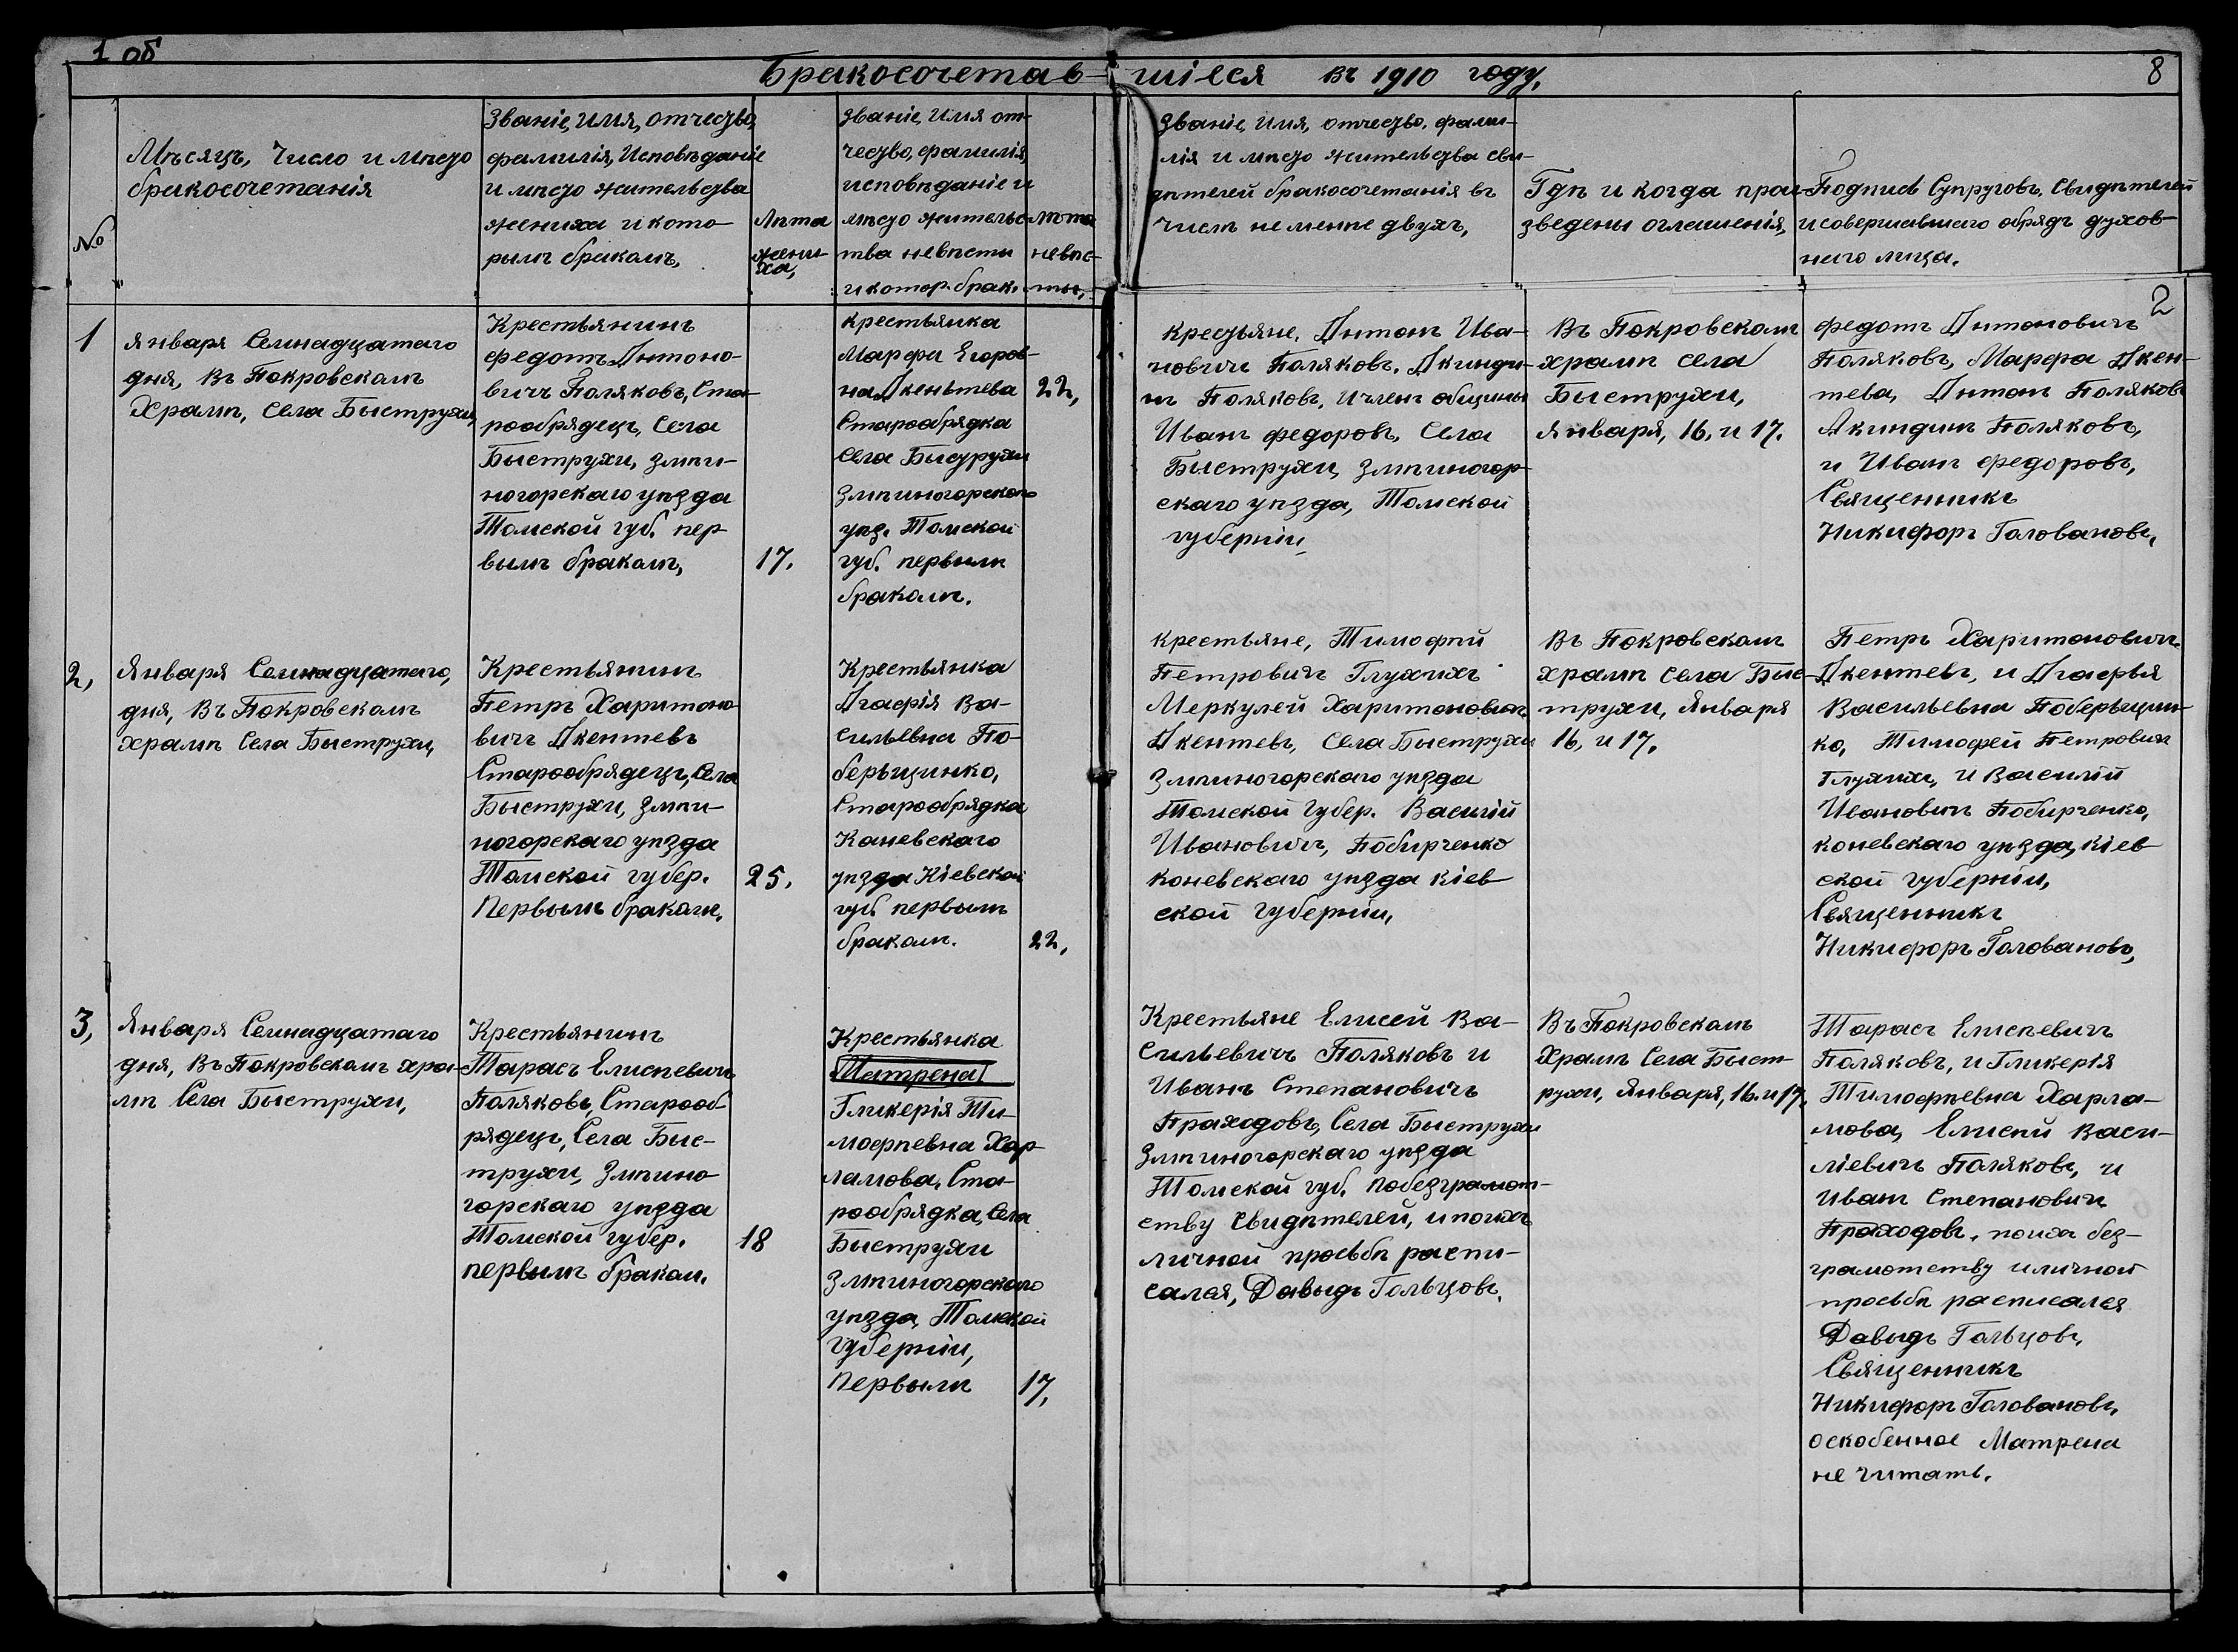 1 об
Бракосочетав-шіеся въ 1910 году.
8
№
Мѣсяцъ, Число и мѣсто
бракосочетанія
Званіе, имя, отчество,
фамилія, Исповѣданіе
и мѣсто жительства
жениха и кото-
рымъ бракомъ,
Лѣта
жени-
ха,
Званіе, имя от-
чество, фамилія,
исповѣданіе и
мѣсто жительс-
тва невѣсты
и котор. брак.
лѣта
невѣс-
ты,
Званіе, имя, отчество, фами-
лія и мѣсто жительства сви-
дѣтелей бракосочетанія въ
числѣ не менѣе двухъ,
Гдѣ и когда прои-
зведены оглашенія,
Подпись Супруговъ, Свидѣтелей
и совершавшаго обрядъ духов-
наго лица.
2
1
Января Семнадцатаго
дня, въ Покровскомъ
Храмѣ, Села Быструхи,
Крестьянинъ
Федотъ Антоно-
вичъ Поляковъ, Ста-
рообрядецъ, Села
Быструхи, Змѣи-
ногорскаго уѣзда
Томской губ. пер-
вымъ бракомъ,
17.
Крестьянка
Марфа Егоров-
на Акентева
Старообрядка
Села Быструхи
Змѣиногорскаго
уѣз. Томской
губ. первымъ
бракомъ.
22,
Крестьяне, Антонъ Ива-
новичъ Поляковъ, Акинди-
нъ Поляковъ, и членъ общины
Иванъ Федоровъ, Села
Быструхи, Змѣиногор-
скаго уѣзда, Томской
губерніи,
Въ Покровскомъ
храмѣ села
Быструхи,
Января, 16, и 17.
Федотъ Антоновичъ
Поляковъ, Марфа Акен-
тева, Антонъ Поляковъ
Акиндинъ Поляковъ,
и Иванъ Федоровъ,
Священникъ
Никифоръ Головановъ,
2,
Января Семнадцатаго,
дня, Въ Покровскомъ
храмѣ Села Быструхи,
Крестьянинъ
Петръ Харитоно-
вичъ Акентевъ
Старообрядецъ, Села
Быструхи, Змѣи-
ногорскаго уѣзда
Томской губер.
Первымъ бракомъ,
25.
Крестьянка
Агафія Ва-
сильевна По-
берьщинко,
Старообрядка
Каневскаго
уѣзда Кіевской
губ. первымъ
бракомъ.
22,
Крестьяне, Тимофѣй
Петровичъ Глухихъ
Меркулей Харитоновичъ
Акентевъ, Села Быструхи
Змѣиногорскаго уѣзда
Томской Губер. Василій
Ивановичъ, Побирченко
Коневскаго уѣзда Кіев
ской Губерніи,
Въ Покровскомъ
храмѣ Села Быс-
трухи, Января
16, и 17.
Петръ Харитоновичъ
Акентевъ, и Агафья
Васильевна Поберьщин-
ко, Тимофей Петровичъ
Глухихъ, и Василій
Ивановичъ Побирченко,
Коневскаго уѣзда, Кіев
ской Губерніи,
Священникъ
Никифоръ Головановъ,
3,
Января Семнадцатаго
дня, въ Покровскомъ хра-
мѣ Села Быструхи,
Крестьянинъ
Тарасъ Елисѣевичъ
Поляковъ, Старооб-
рядецъ, Села Быс-
трухи, Змѣино
горскаго уѣзда
Томской губер.
первымъ бракомъ.
18
Крестьянка
Матрена
Гликерія Ти-
мофѣевна Хар
ламова, Ста-
рообрядка, Села
Быструхи
Змѣиногорскаго
уѣзда, Томской
Губерніи,
Первымъ
17,
Крестьяне Елисей Ва-
сильевичъ Поляковъ и
Иванъ Степановичъ
Праходовъ, Села Быструхи
Змѣиногорскаго уѣзда
Томской губ. по безграмот-
ству Свидѣтелей, и по ихъ
личной просьбѣ распи-
сался, Давыдъ Гольцовъ,
Въ Покровскомъ
Храмѣ Села Быст-
рухи, Января, 16. и 17,
Тарасъ Елисѣевичъ
Поляковъ, и Гликерія
Тимофѣевна Харла-
мова, Елисѣй Васи-
ліевичъ Поляковъ, и
Иванъ Степановичъ
Праходовъ, по ихъ без-
грамотству и личной
просьбѣ расписался
Давыдъ Гольцовъ,
Священникъ
Никифоръ Головановъ,
оскобенное Матрена
не читать.